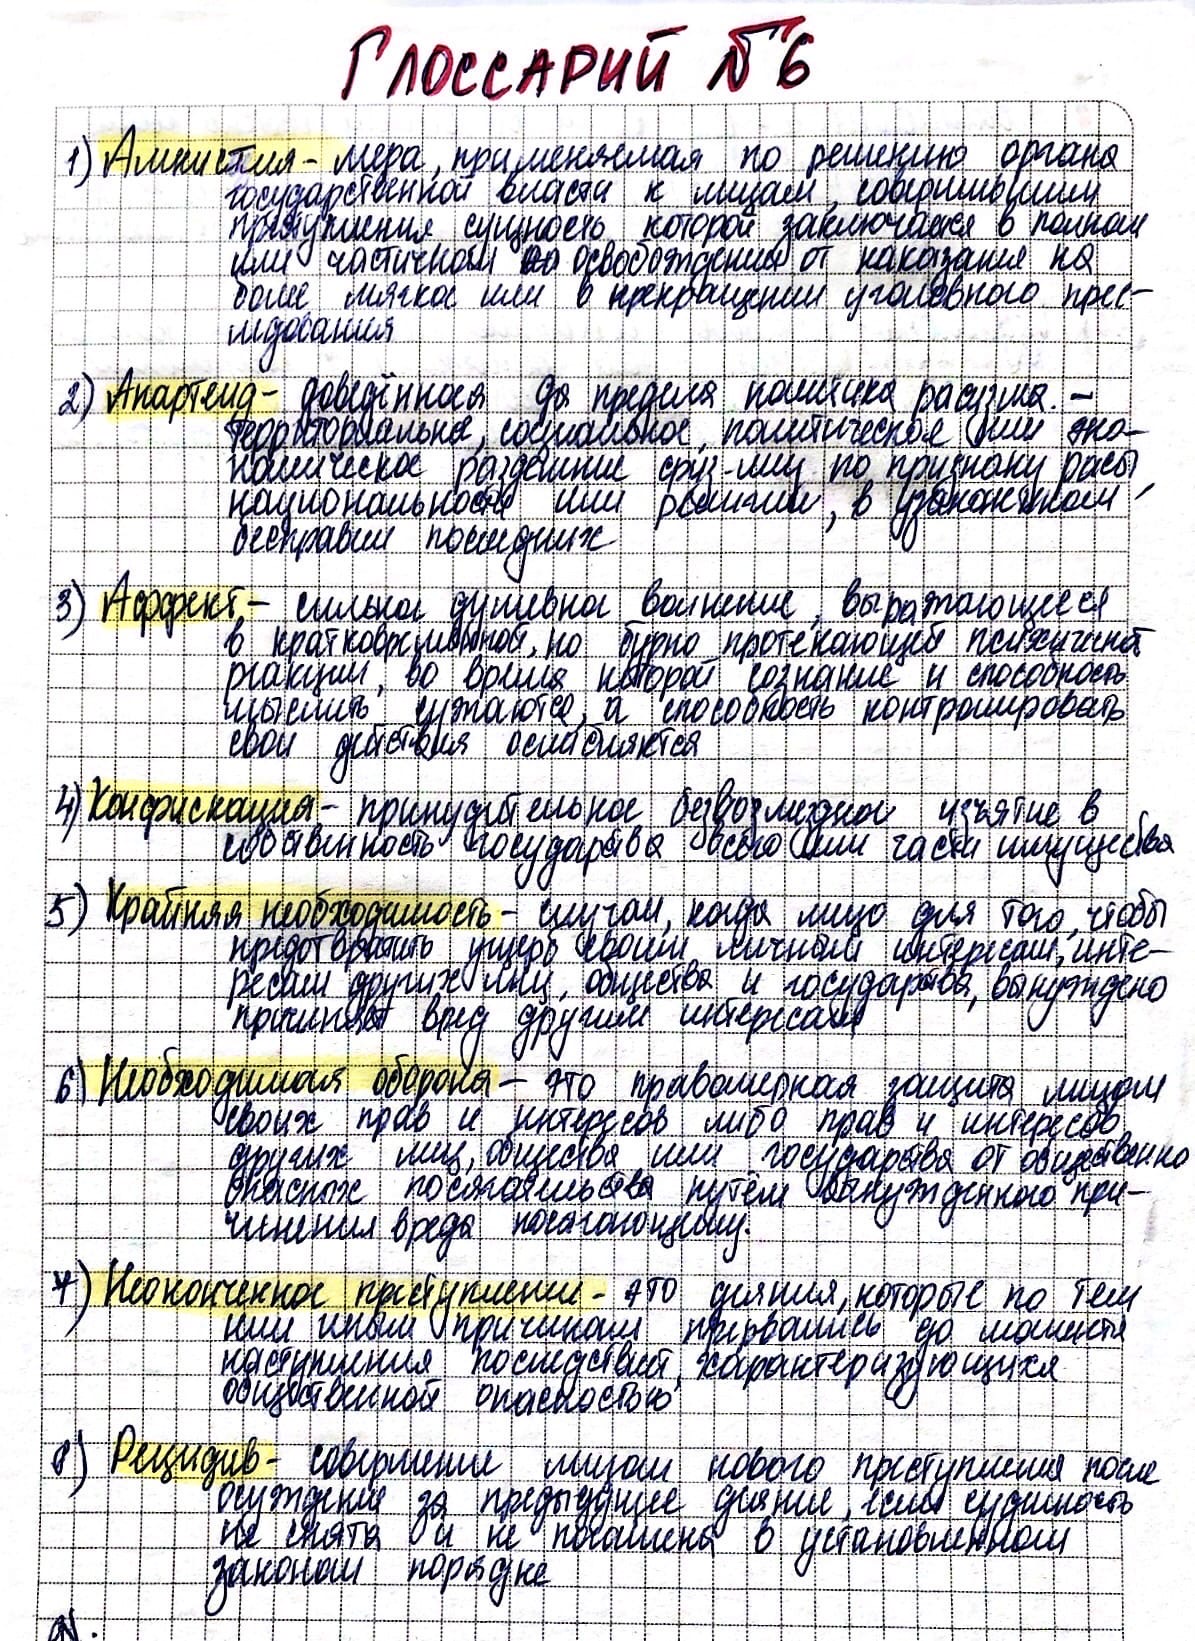 Глоссарий №6
1) Амнистия - мера, применяемая по решению органа
государственной власти к лицам, совершившим
преступления сущность которой заключается в полном
или частичном освобождении от наказания на
более мягкое или в прекращении уголовного прес-
ледования
2) Апартеид - доведённая до предела политика расизма. -
территориальное, социальное, политическое или эко-
номическое разделение физ-лиц по признаку расы,
национальности или религии, в узаконенном
бесправии последних
3) Аффект - сильное душевное волнение, выражающееся
в кратковременной, но бурно протекающей психической
реакции, во время которой сознание и способность
мыслить сужаются, а способность контролировать
свои действия ослабляются
4) Конфискация - принудительное безвозмездное изъятие в
собственность государства всего или части имущества
5) Крайняя необходимость - случаи, когда лицо для того, чтобы
предотвратить ущерб своим личным интересам, инте-
ресам других лиц, общества и государства, вынуждено
причиняет вред другим интересам
6) Необходимая оборона - это правомерная защита лицом
своих прав и интересов либо прав и интересов
других лиц, общества или государства от общественно
опасных посягательства путём вынужденного при-
чинения вреда посягающему.
7) Неоконченное преступление - это деяния, которые по тем
или иным причинам прервались до момента
наступления последствий, характеризующихся
общественной опасностью
8) Рецидив - совершение лицом нового преступления после
осуждения за предыдущее деяние, если судимость
не снята и не погашена в установленном
законом порядке